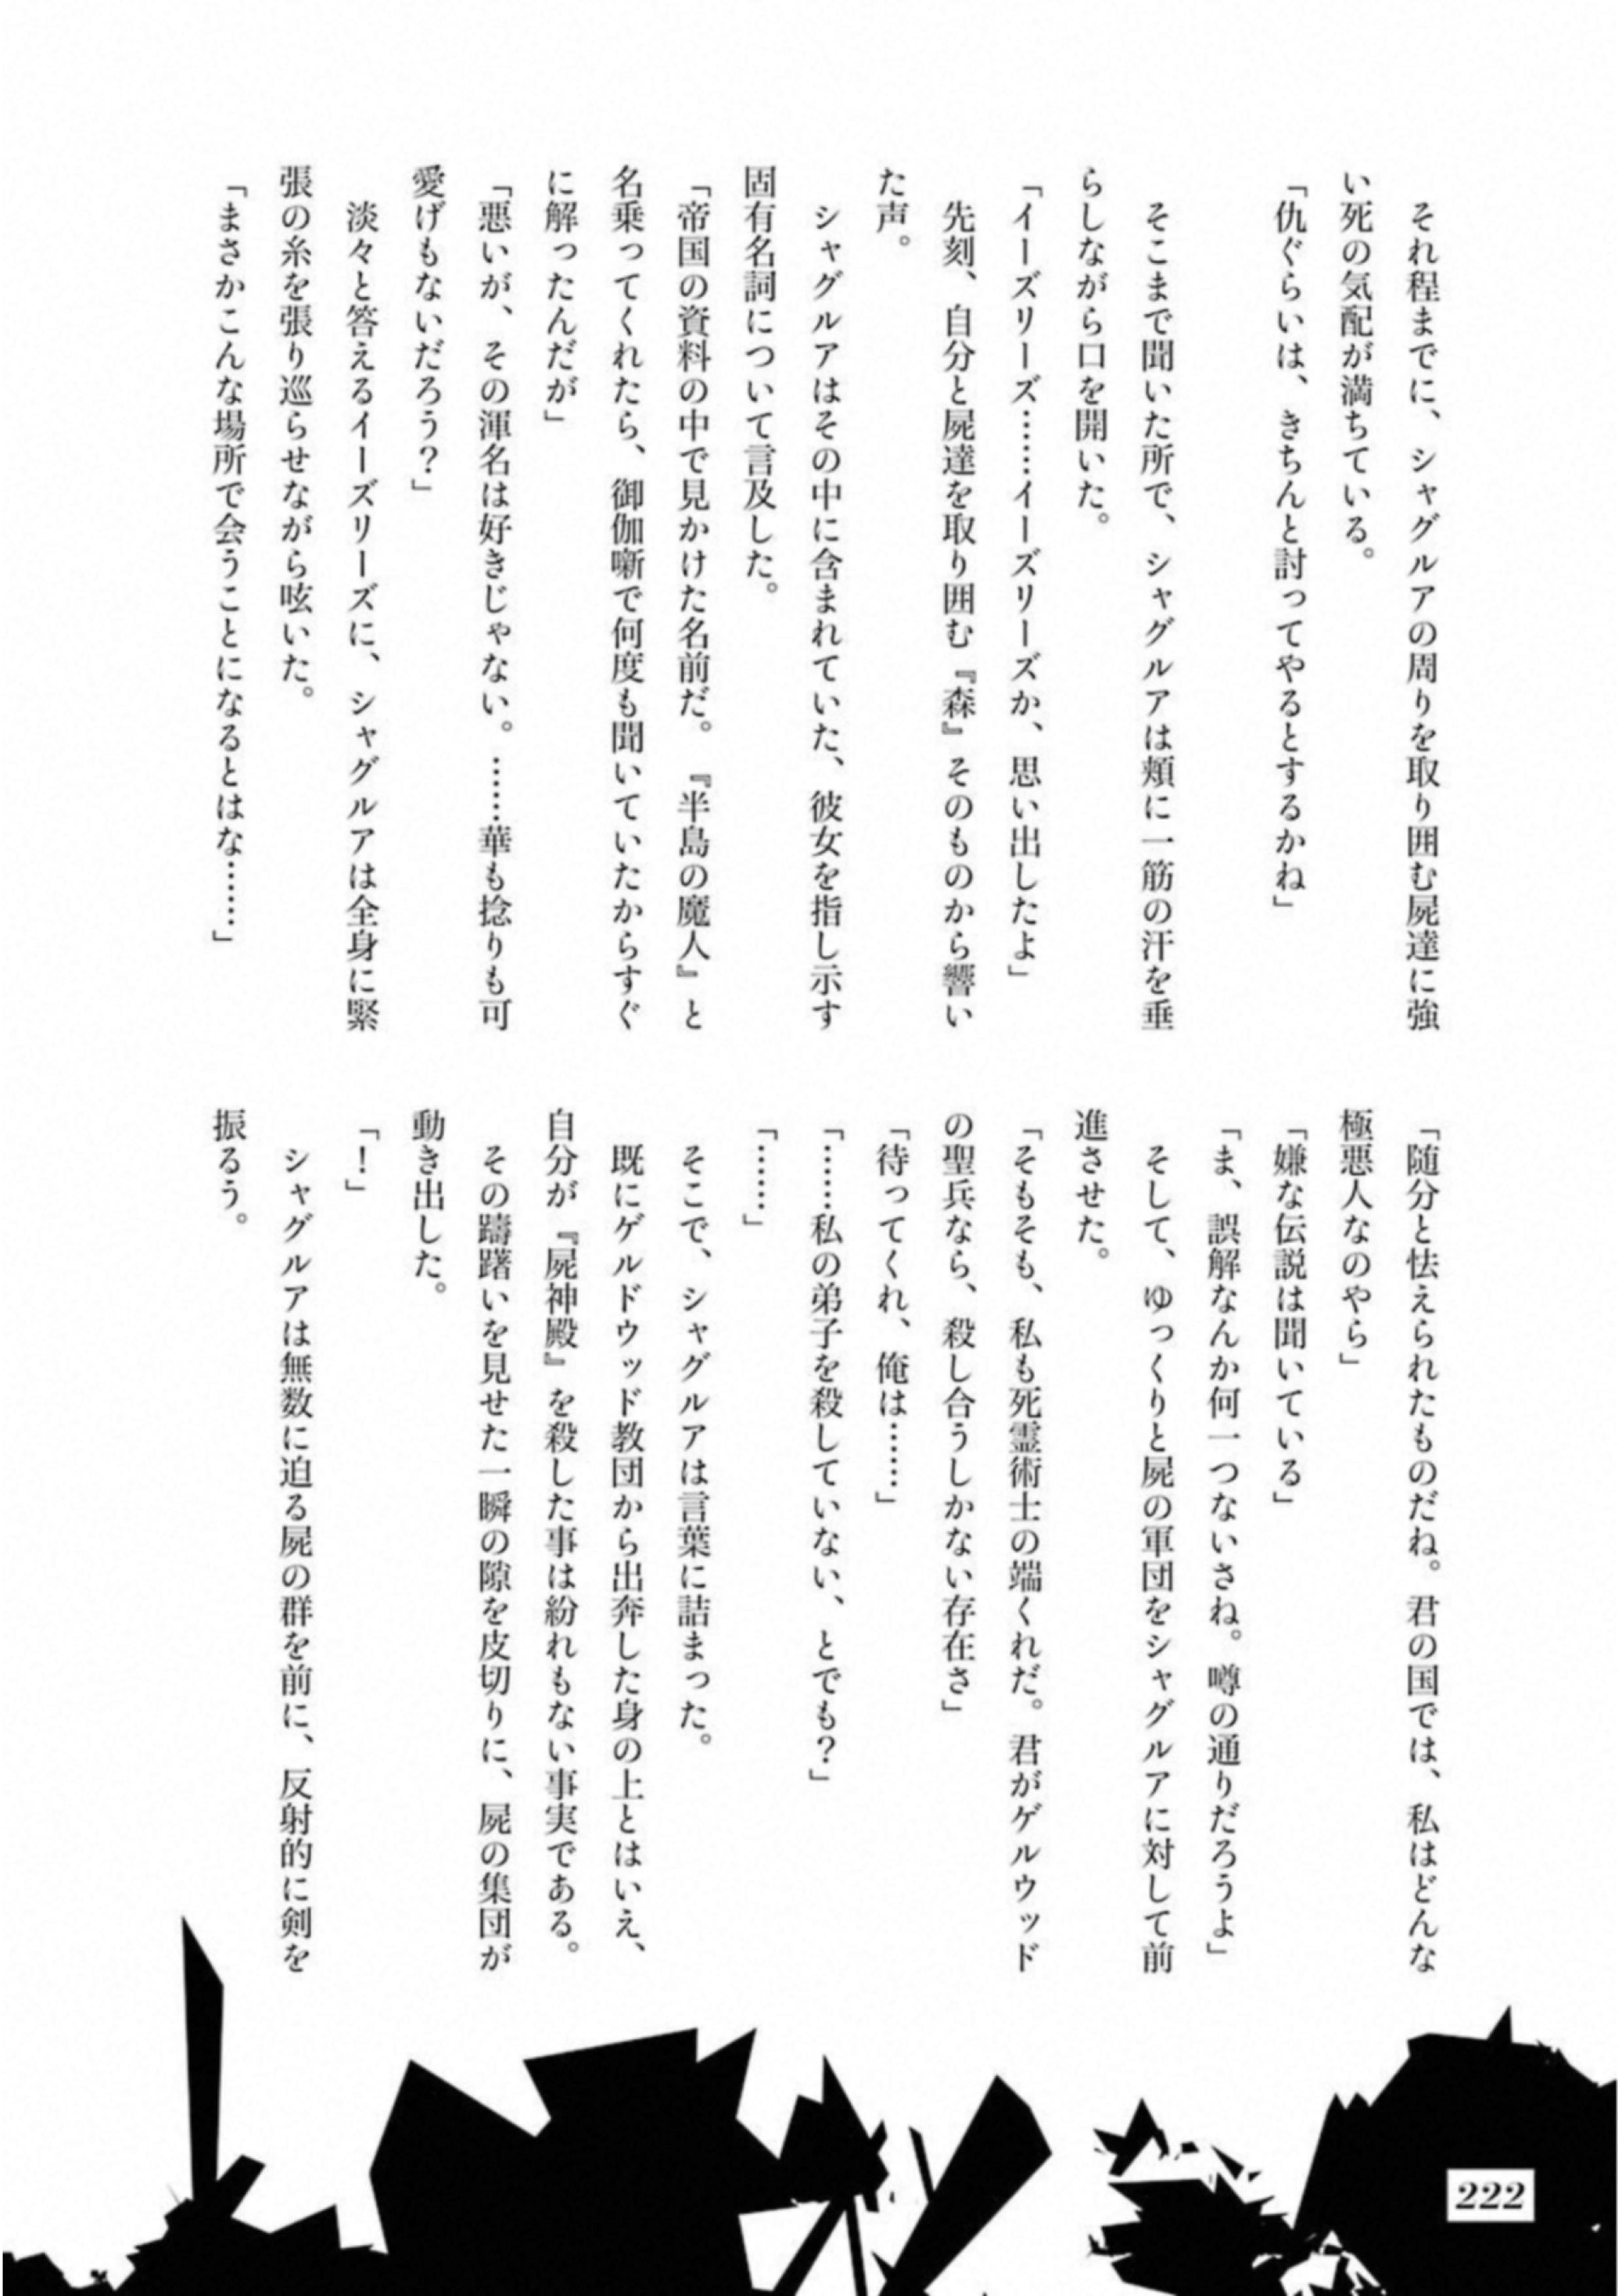 それ程までに、シャグルアの周りを取り囲む屍達に強
い死の気配が満ちている。
「仇ぐらいは、きちんと討ってやるとするかね」
　そこまで聞いた所で、シャグルアは頬に一筋の汗を垂
らしながら口を開いた。
「イーズリーズ……イーズリーズか、思い出したよ」
　先刻、自分と屍達を取り囲む『森』そのものから響い
た声。
　シャグルアはその中に含まれていた、彼女を指し示す
固有名詞について言及した。
「帝国の資料の中で見かけた名前だ。『半島の魔人』と
名乗ってくれたら、御伽噺で何度も聞いていたからすぐ
に解ったんだが」
「悪いが、その渾名は好きじゃない。……華も捻りも可
愛げもないだろう？」
　淡々と答えるイーズリーズに、シャグルアは全身に緊
張の糸を張り巡らせながら呟いた。
「まさかこんな場所で会うことになるとはな……」
「随分と怯えられたものだね。君の国では、私はどんな
極悪人なのやら」
「嫌な伝説は聞いている」
「ま、誤解なんか何一つないさね。噂の通りだろうよ」
　そして、ゆっくりと屍の軍団をシャグルアに対して前
進させた。
「そもそも、私も死霊術士の端くれだ。君がゲルウッド
の聖兵なら、殺し合うしかない存在さ」
「待ってくれ、俺は……」
「……私の弟子を殺していない、とでも？」
「……」
　そこで、シャグルアは言葉に詰まった。
　既にゲルドウッド教団から出奔した身の上とはいえ、
自分が『屍神殿』を殺した事は紛れもない事実である。
　その躊躇いを見せた一瞬の隙を皮切りに、屍の集団が
動き出した。
「！」
　シャグルアは無数に迫る屍の群を前に、反射的に剣を
振るう。
222